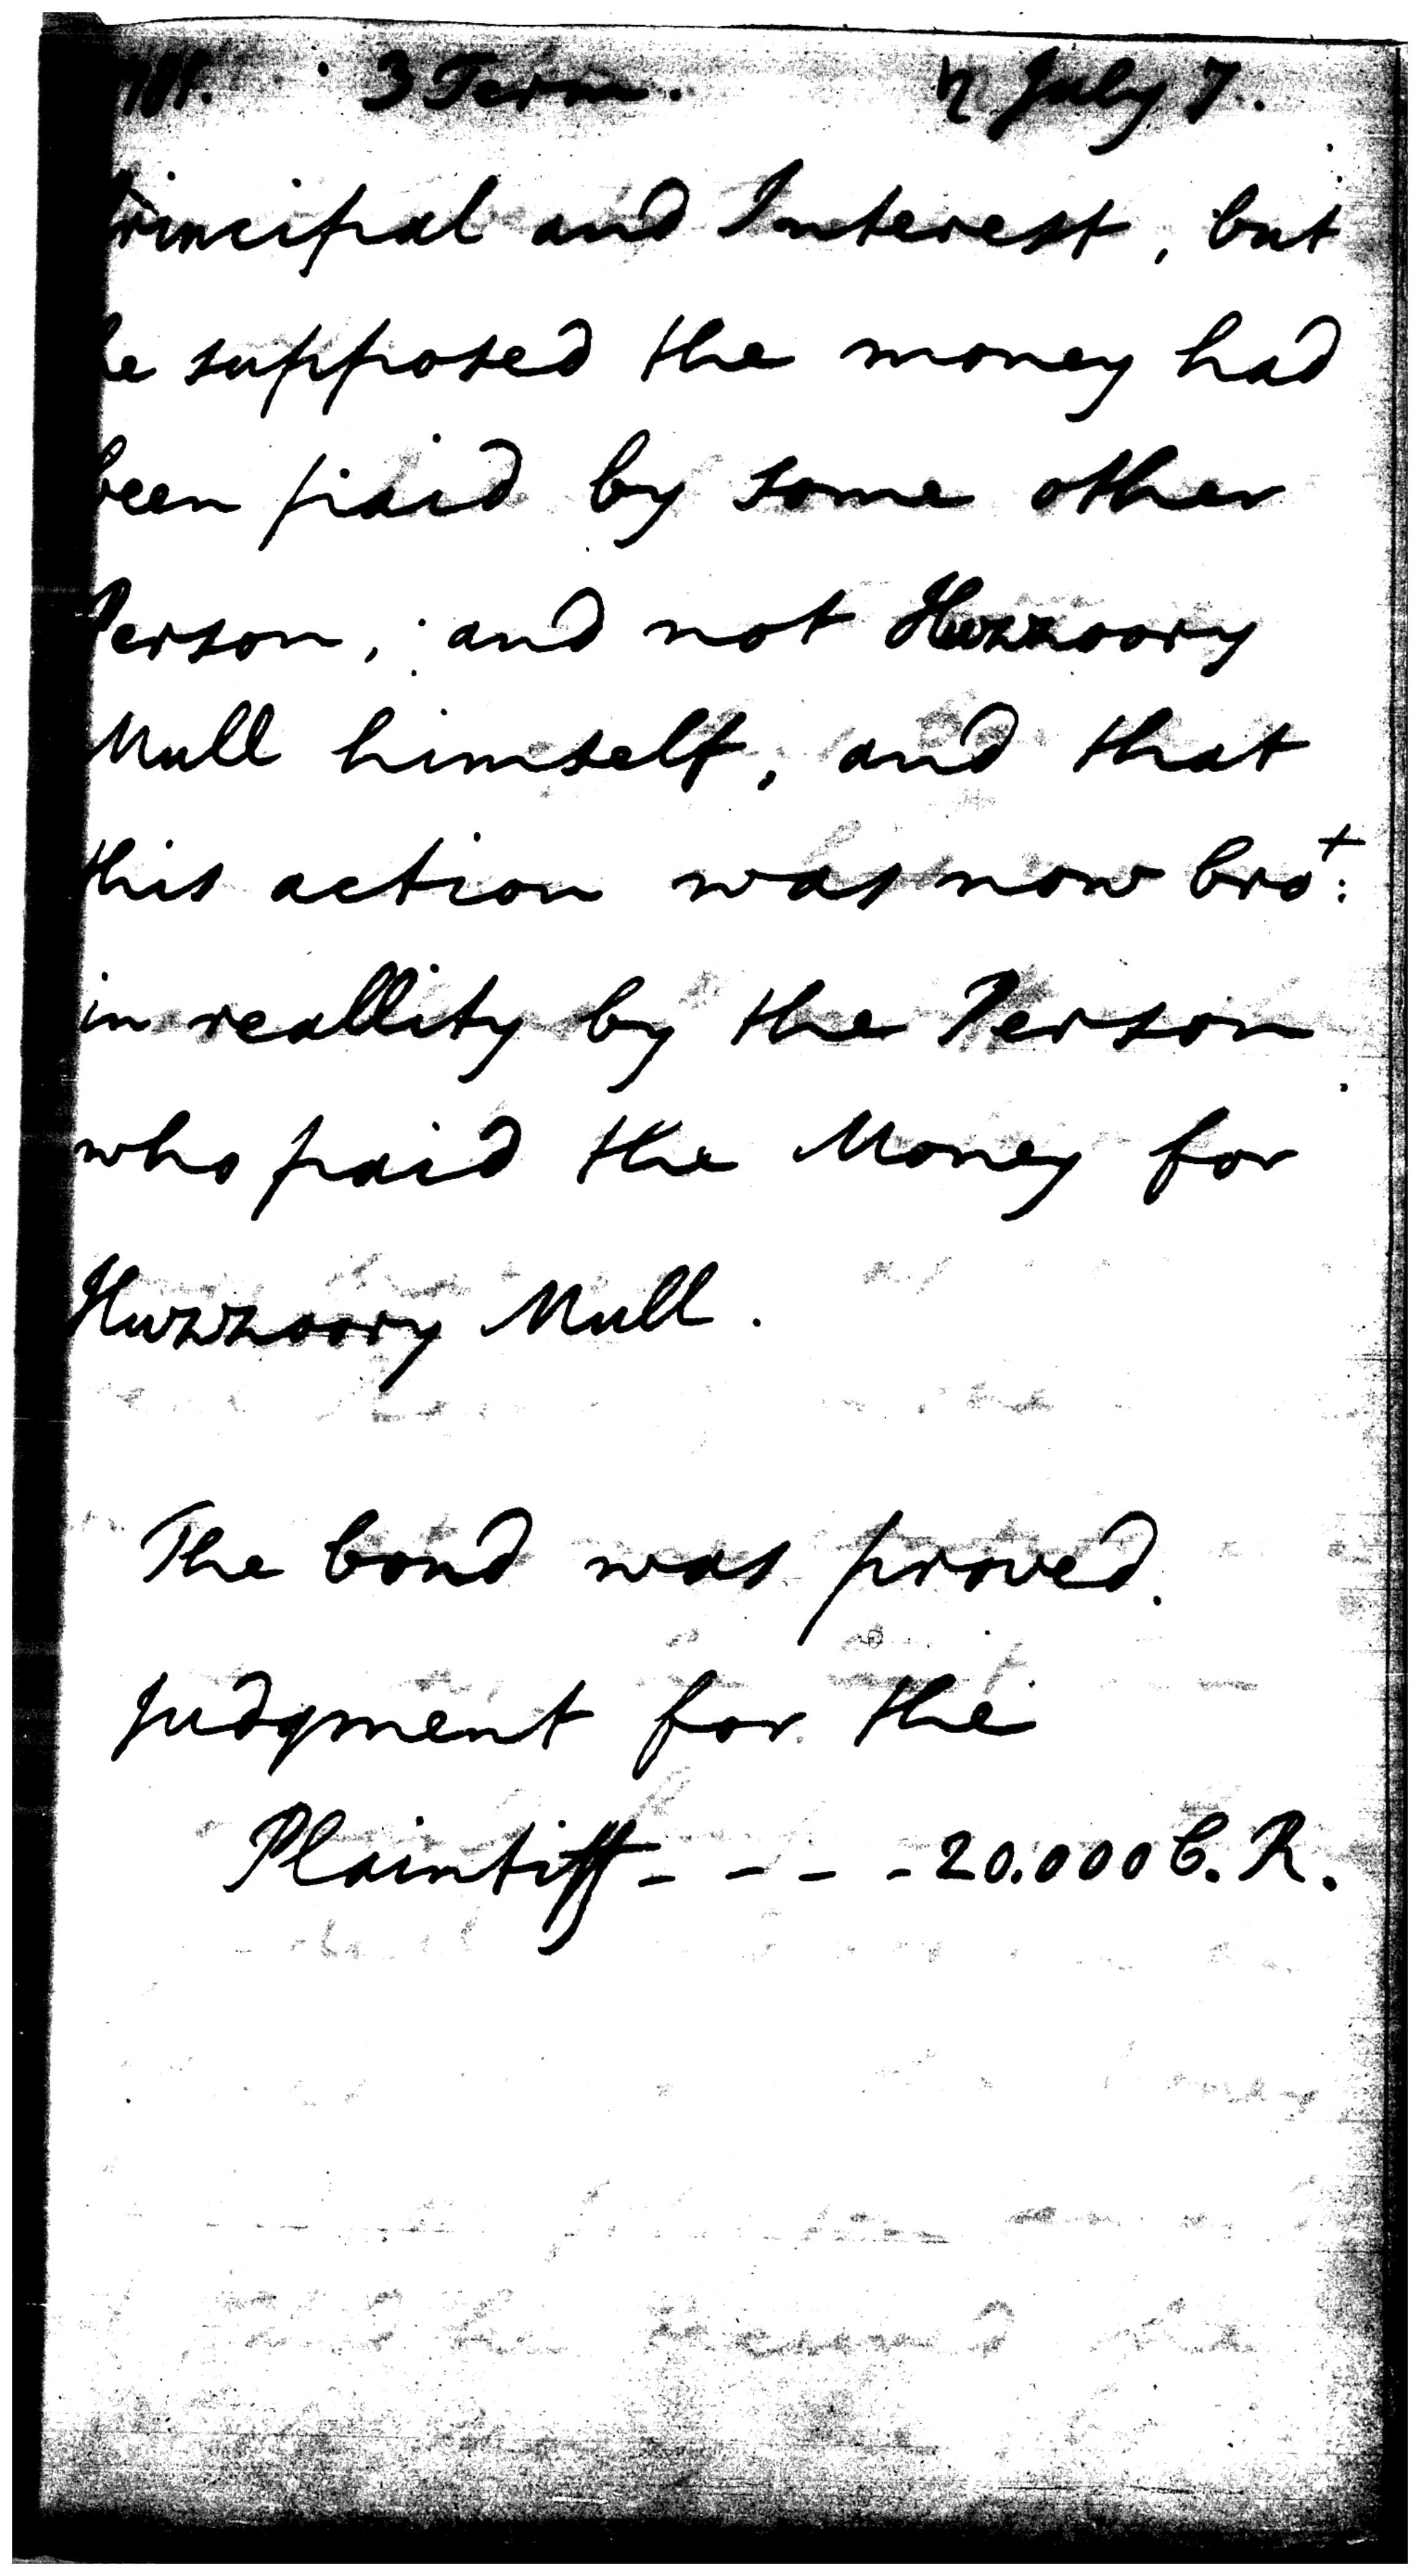 3 Term. ♄ July 7.
Principal and Interest, but
he supposed the money had
been paid by some other
Person, and not Huzzoory
Mull himself, and that
this action was now bro:t
in reallity by the Person
who paid the Money for
Huzzoory Mull.
The bond was proved.
Judgment for the
Plaintiff - - - - 20.000 C. R.